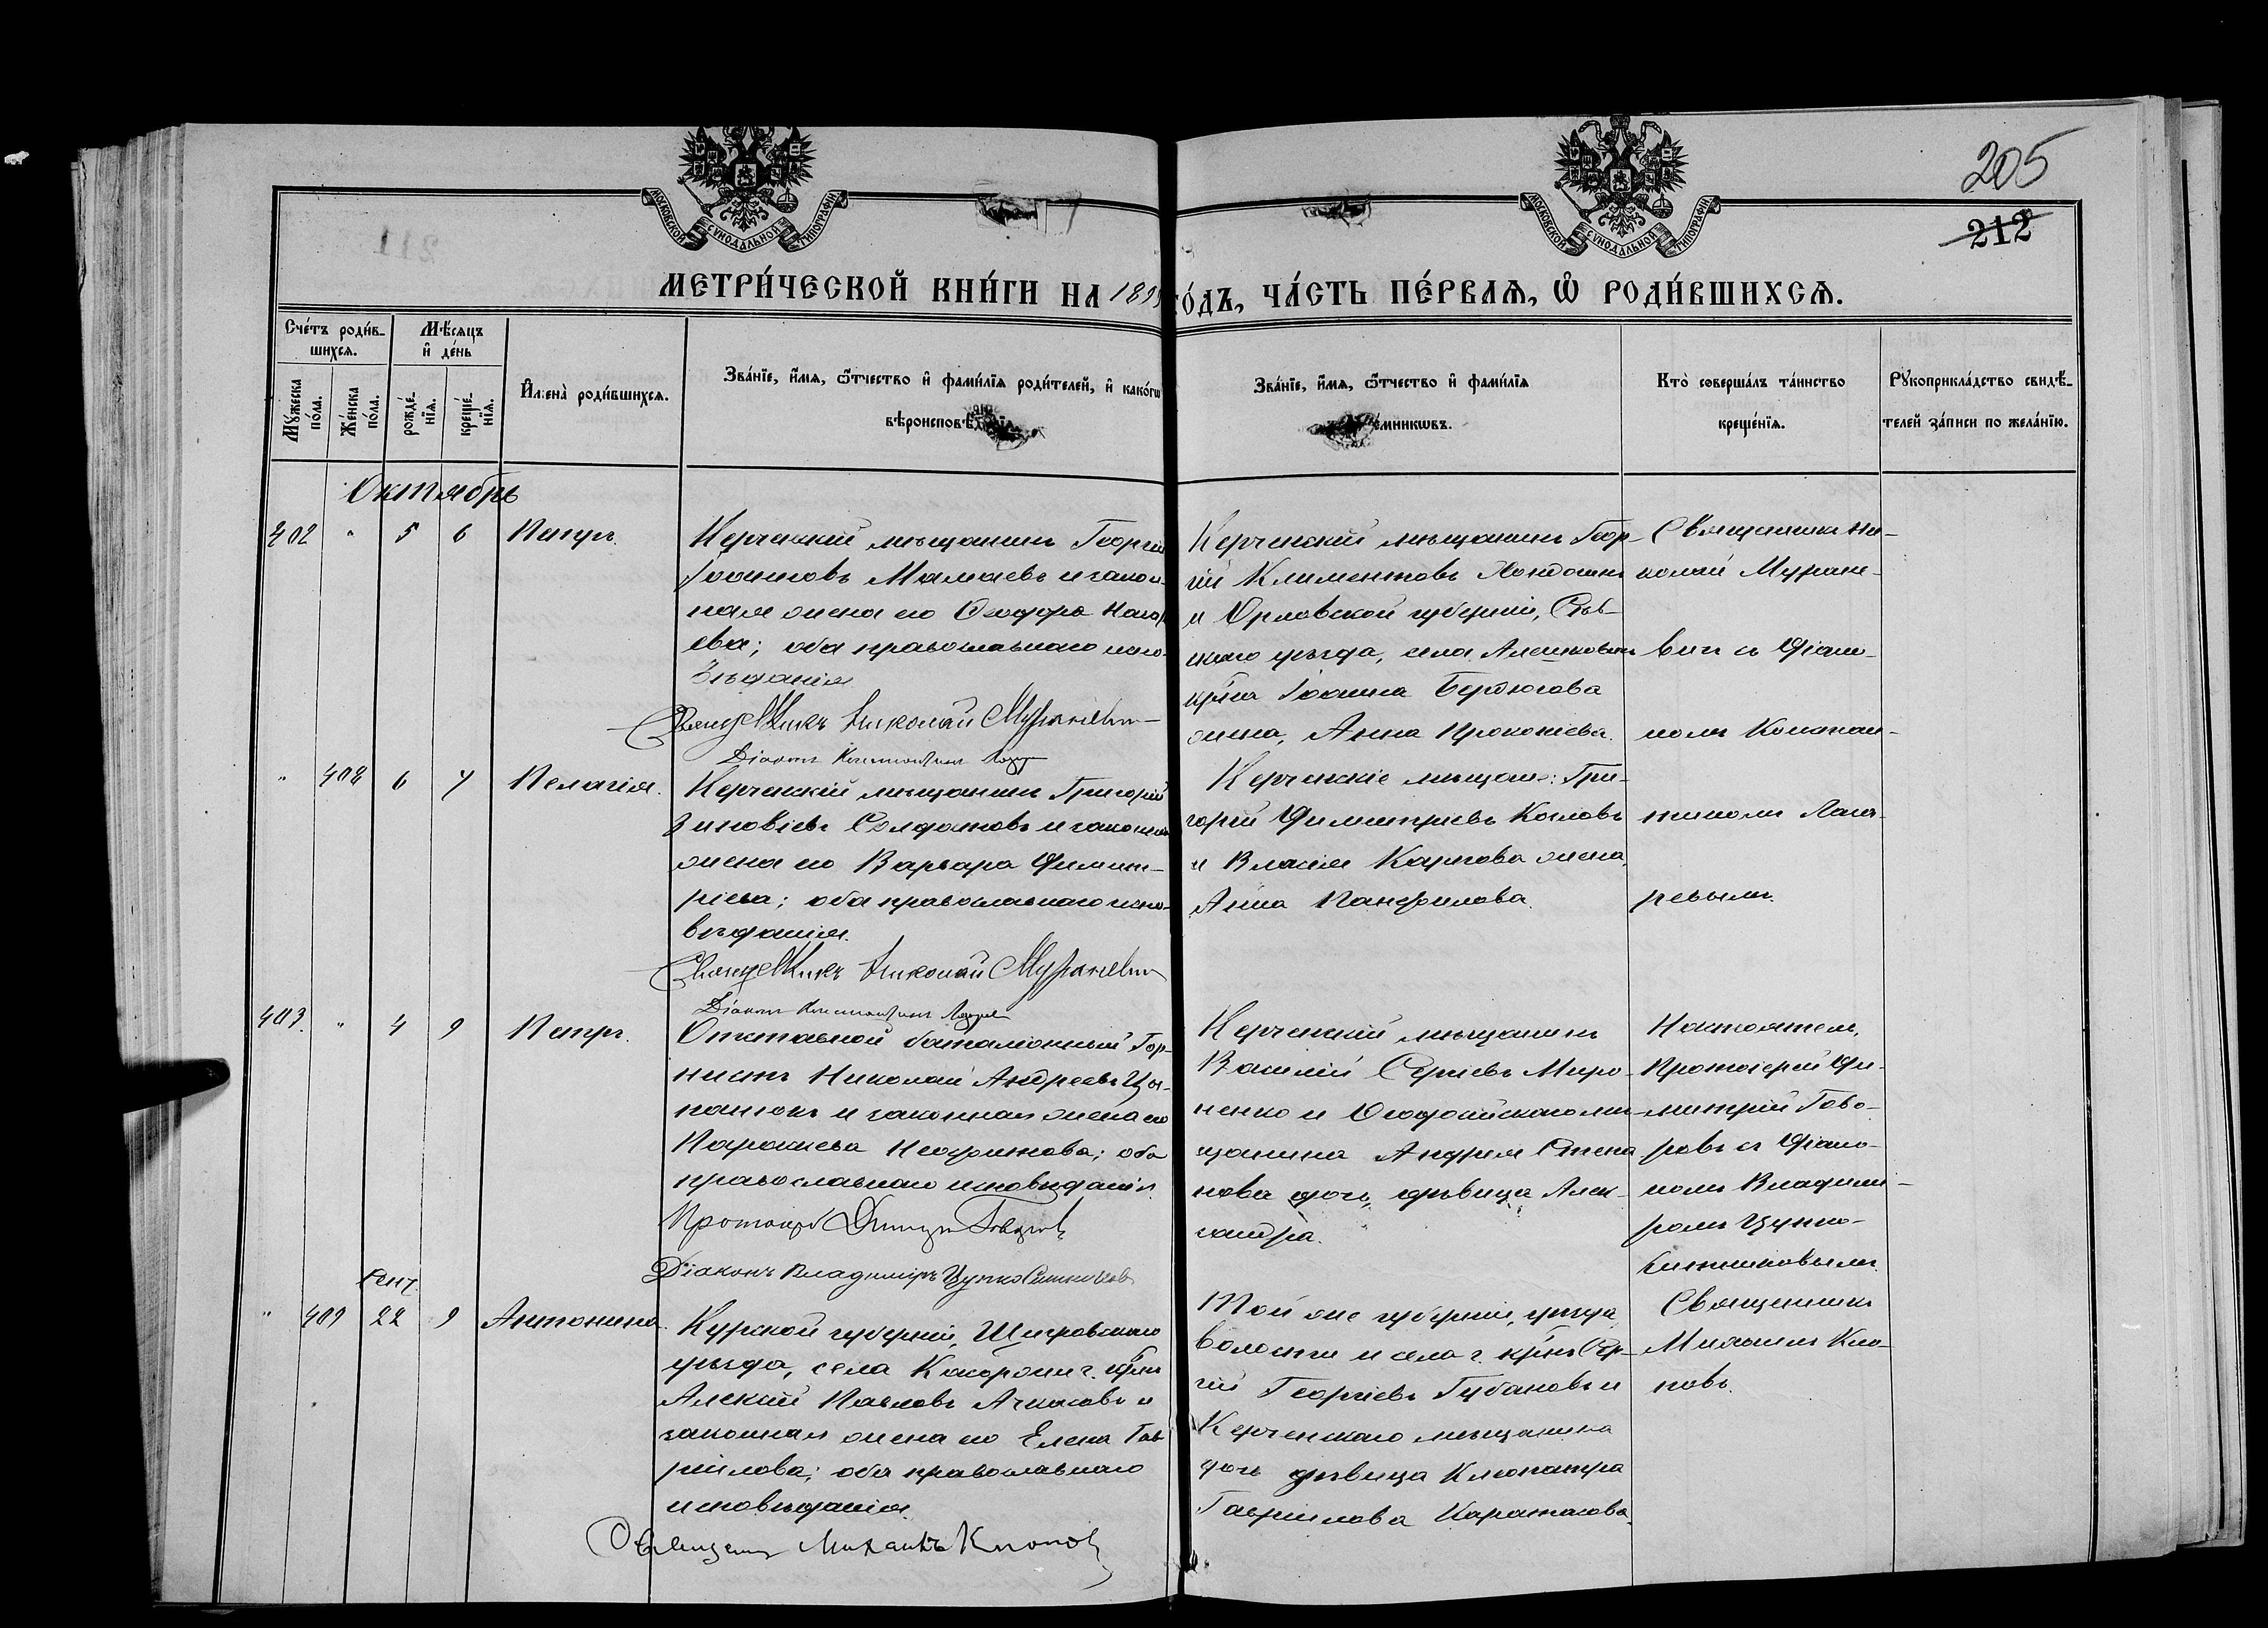 205
212
МОСКОВСКОЙ СѴНОДАЛЬНОЙ ТИПОГРАФІИ
МОСКОВСКОЙ СѴНОДАЛЬНОЙ ТИПОГРАФІИ
МЕТРИ́ЧЕСКОЙ КНИ́ГИ НА 189 ГО́ДЪ, ЧА́СТЬ ПЕ́РВАѦ, Ѽ РОДИ́ВШИХСѦ.
Сче́тъ роди́в-
шихсѧ.
Мѣ́сѧцъ
и҆ де́нь
Мꙋ́жеска по́ла.
Же́нска по́ла.
рожде́-
нїѧ.
креще́-
нїѧ.
И҆мена̀ роди́вшихсѧ.
Зва́нїе, и҆́мѧ, ѻ҆́тчество и҆ фами́лїѧ роди́телей, и҆ како́гѡ
вѣроисповѣ́данїѧ
Зва́нїе, и҆́мѧ, ѻ҆́тчество и҆ фами́лїѧ
е́мникѡвъ.
Кто̀ соверша́лъ та́инство
креще́нїѧ.
Рꙋкоприкла́дство свидѣ́-
телей за́писи по жела́нїю.
Октябрь
402 " 5 6 Петръ.
Керченскій мѣщанинъ Георгій
Іоанновъ Мамаевъ и закон-
ная жена его Ѳеодора
ева; оба православнаго испо-
вѣданія
Священникъ Николай Мураневичъ
Діаконъ Константинъ Лазаревъ
Керченскій мѣщанинъ Геор-
гій Климентовъ
и Орловской губерніи, Сѣв-
скаго уѣзда, села
кр-на Іоанна
жена, Анна Прокопіева.
Священникъ Ни-
колай Муране-
вичъ съ Діако-
номъ Констан-
тиномъ Лаза-
ревымъ.
" 408 6 7 Пелагія.
Керченскій мѣщанинъ Григорій
Зиновіевъ Солдатовъ и законная
жена его Варвара Димит-
ріева; оба православнаго испо-
вѣданія.
Священникъ Николай Мураневичъ
Діаконъ Константинъ Лазаревъ
Керченскіе мѣщане: Гри-
горій Димитріевъ Козловъ
и Власія Карпова жена,
Анна Панфилова.
403. " 4 9 Петръ.
Отставной баталіонный Гор-
нистъ Николай Андреевъ Цы-
ганокъ и законная жена его
Параскева Неофитова; оба
православнаго исповѣданія.
Протоіерей Димитрій Говоровъ
Діаконъ Владимиръ Цупко Ситниковъ
Керченскій мѣщанинъ
Василій Сергіевъ Миро-
ненко и Ѳеодосійскаго мѣ-
щанина Андрея Степа-
нова дочь, дѣвица Алек-
сандра.
Настоятель,
Протоіерей Ди-
митрій Гово-
ровъ съ Діако-
номъ Владими-
ромъ Цупко-
Ситниковымъ.
Сент.
" 409 22 9 Антонина.
Курской губерніи, Щигровскаго
уѣзда, села кр-нъ
Алексій Павловъ и
законная жена его Елена Гав-
ріилова; оба православнаго
исповѣданія.
Священникъ Михаилъ Клоповъ
Той же губерніи, уѣзда
волости и села кр-нъ Сер-
гій Георгіевъ Губановъ и
Керченскаго мѣщанина
дочь дѣвица Клеопатра
Гавріилова Каратасова.
Священникъ
Михаилъ Кло-
повъ.